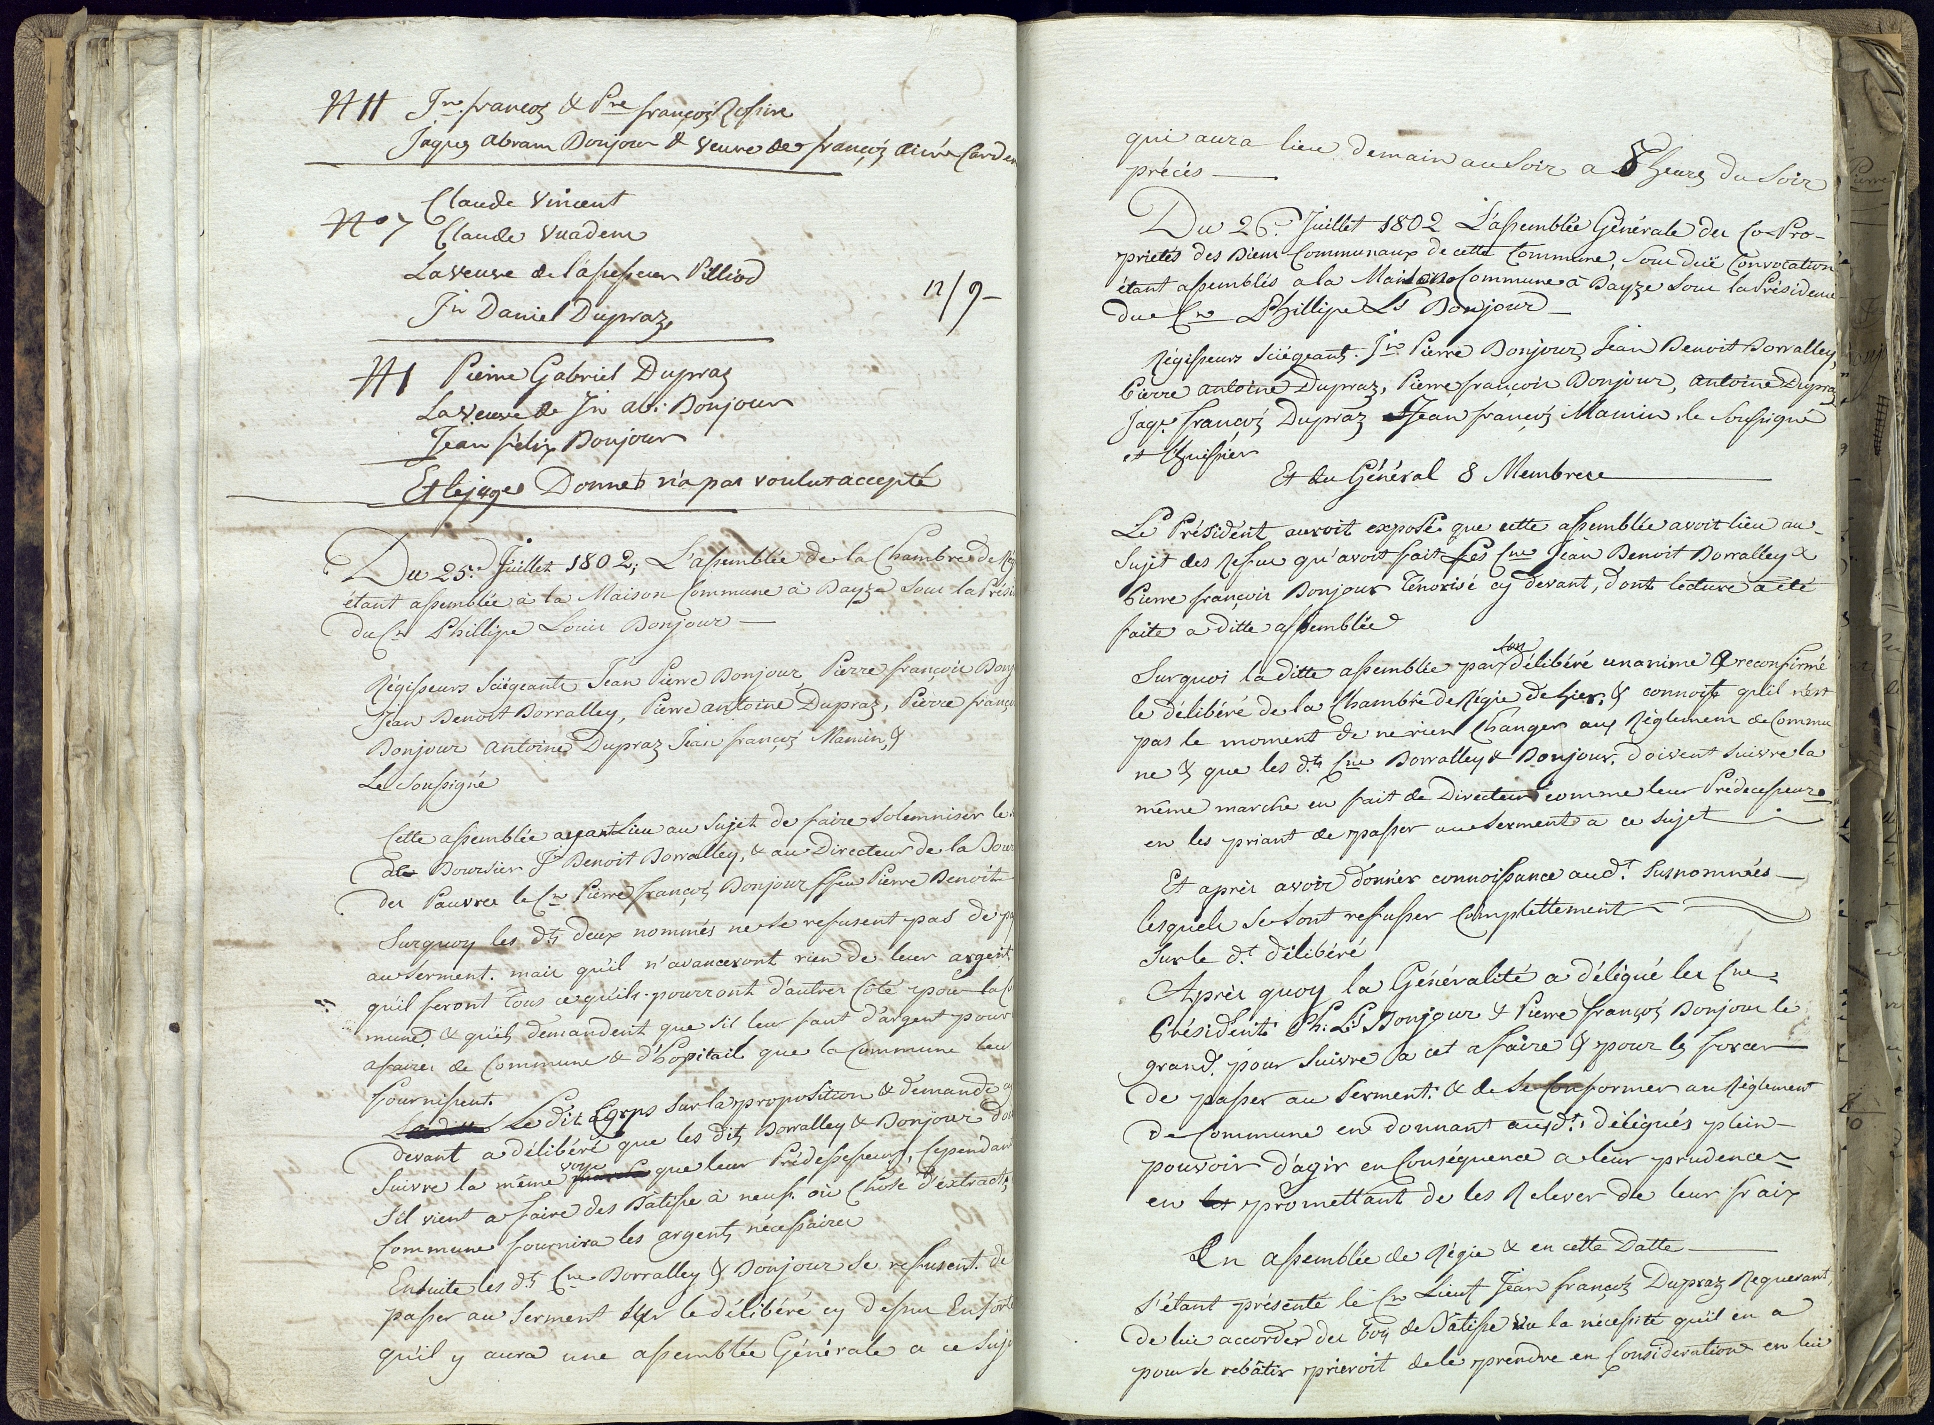 N 11 Jn. françoy & Pre françoy Ressin
Jaques Abram Bonjour & veuve de françoy aimé Carden
No 7 Claude Vincent
Claude Vuadem
La veuve de l'assesseur Pilliod
Jn Daniel Dupraz
12/9-
N 1 Pierre Gabriel Dupraz
La veuve de Jn ab: Bonjour
Jean félix Bonjour
Et le juge Donnet n'a pas voulut accepté
Du 25e. Juillet 1802; L'assemblée de la Chambre de Ré
étant assemblée à la Maison Commune à Bayze sous la Présid
du Cn Phillipe Louis Bonjour —
Régisseurs Siégeants Jean Pierre Bonjour, Pierre françois Bonj
Jean Benoit Borralley, Pierre antoine Dupraz, Pierre franço
Bonjour antoine Dupraz Jean françoy Mamin, &
Le Soussigné
Cette assemblée ayant Lieu au Sujet de faire Solemniser le
de Boursier Jn Benoit Borralley, & au Directeur de la Bour
des Pauvres le Cn Pierre françoy Bonjour ffeu Pierre Benoit
Surquoy les dts deux nommés ne se refusent pas de p
au Serment. mais qu'il n'avanceront rien de leur argent
qu'il feront tous ce qu'ils pourront d'autres Côté pour la C
mune & qu'ils demandent que sil leur faut d'argent pour
afaires de Commune & d'hopitail que la Commune leu
fournissent.
Le dit Corps Sur la proposition & demande cy
devant a délibéré que les dits Borralley & Bonjour doi
Suivre la même voye que leur Prédessesseurs, Cependant
sil vient a faire des Batisse à neuf. ou Chose d'extracts
Commune fournira les argents nécessaires
Ensuite les dts Cns Borralley & Bonjour se refusent de
passer au Serment Sur le délibéré cy dessu Ensorte
qu'il y aura une assemblée Générale a ce Suje
qui aura lieu demain au Soir a 8 heures du Soir
précis —
Du 26e. Juillet 1802 L'assemblée Générale des Co-Pro-
prietés des Biens Communaux de cette Commune, Sous duë Convocation
étant assemblés a la Maison Commune à Bayze Sous la Présidence
du Cn Phillipe Ls Bonjour —
Régisseurs Siégeants. Jn Pierre Bonjour, Jean Benoit Borralley,
Pierre antoine Dupraz, Pierre françois Bonjour, antoine Dupraz
Jaqs françoy Dupraz Jean françoy Mamin, le Soussigné
et l'huissier
Et du Général 8 Membres
Le Président auroit exposé que cette assemblée avoit lieu au-
Sujet des Refus qu'avoit fait les Cns Jean Benoit Borralley &
Pierre françois Bonjour Ténorisé cy devant, dont lecture a été
faite a ditte assemblée
Surquoi la ditte assemblée par son délibéré unanime a reconfirmé
le délibéré de la Chambre de Régie de hier, & connoist qu'il n'est
pas le moment de ne rien Changer aux Règlement de Commu
ne & que les dts Cns Borralley & Bonjour. doivent suivre la
même marche en fait de Directeur comme leur Prédecesseurs
en les priant de passer au Serment a ce Sujet —
Et après avoir donner connoissance aud.t Susnommés —
lesquels se sont refusser Complettement
Sur le d.t délibéré
Après quoy la Généralité a délégué les Cns
Président Ph: Ls Bonjour & Pierre françoy Bonjour le
grand. pour Suivre a cet afaire & pour les forcer
de passer au Serment. & de se Conformer au Règlement
de Commune en donnant aux dts délégués plein-
pouvoir d'agir en Conséquence a leur prudence
en promettant de les Relever de leur fraix
En assemblée de Régie & en cette Datte —
S'étant présenté le Cn Lieut Jean françoy Dupraz Requerant
de lui accorder des Boy de Bâtisse vu la nécessité qu'il en a
pour se rebâtir prieroit de le prendre en Considération en lui